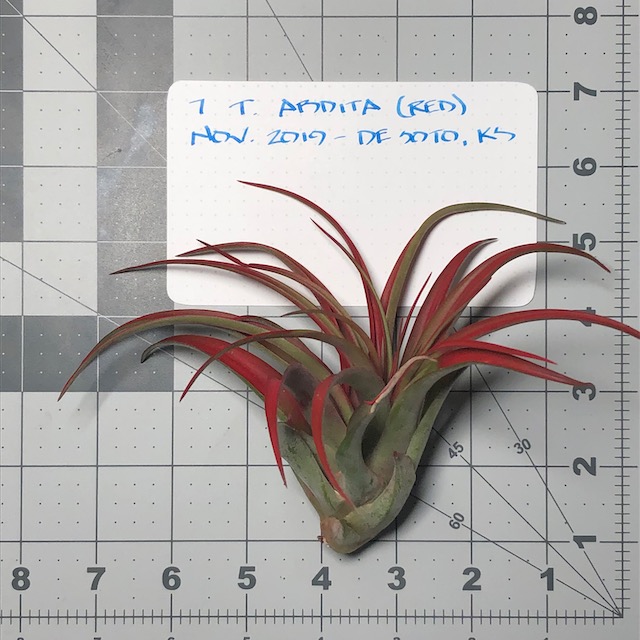 1 T. ABDITA (RED)
NOV. 2019 - DE SOTO, KS
8
7
6
5
4
3
2
1
45
30
60
8 7 6 5 4 3 2 1